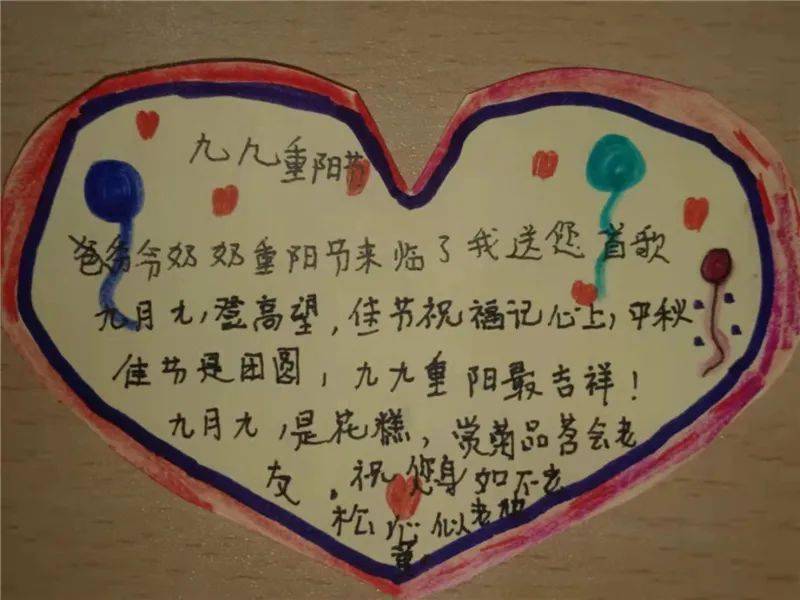 九九重阳节
爸爷爷奶奶重阳节来临了我送您首歌
九月九,登高望,佳节祝福记心上,中秋
佳节是团圆,九九重阳最吉祥!
九月九,是花糕,赏菊品茗会老
友,祝您身如不老
松,心似老顽
童